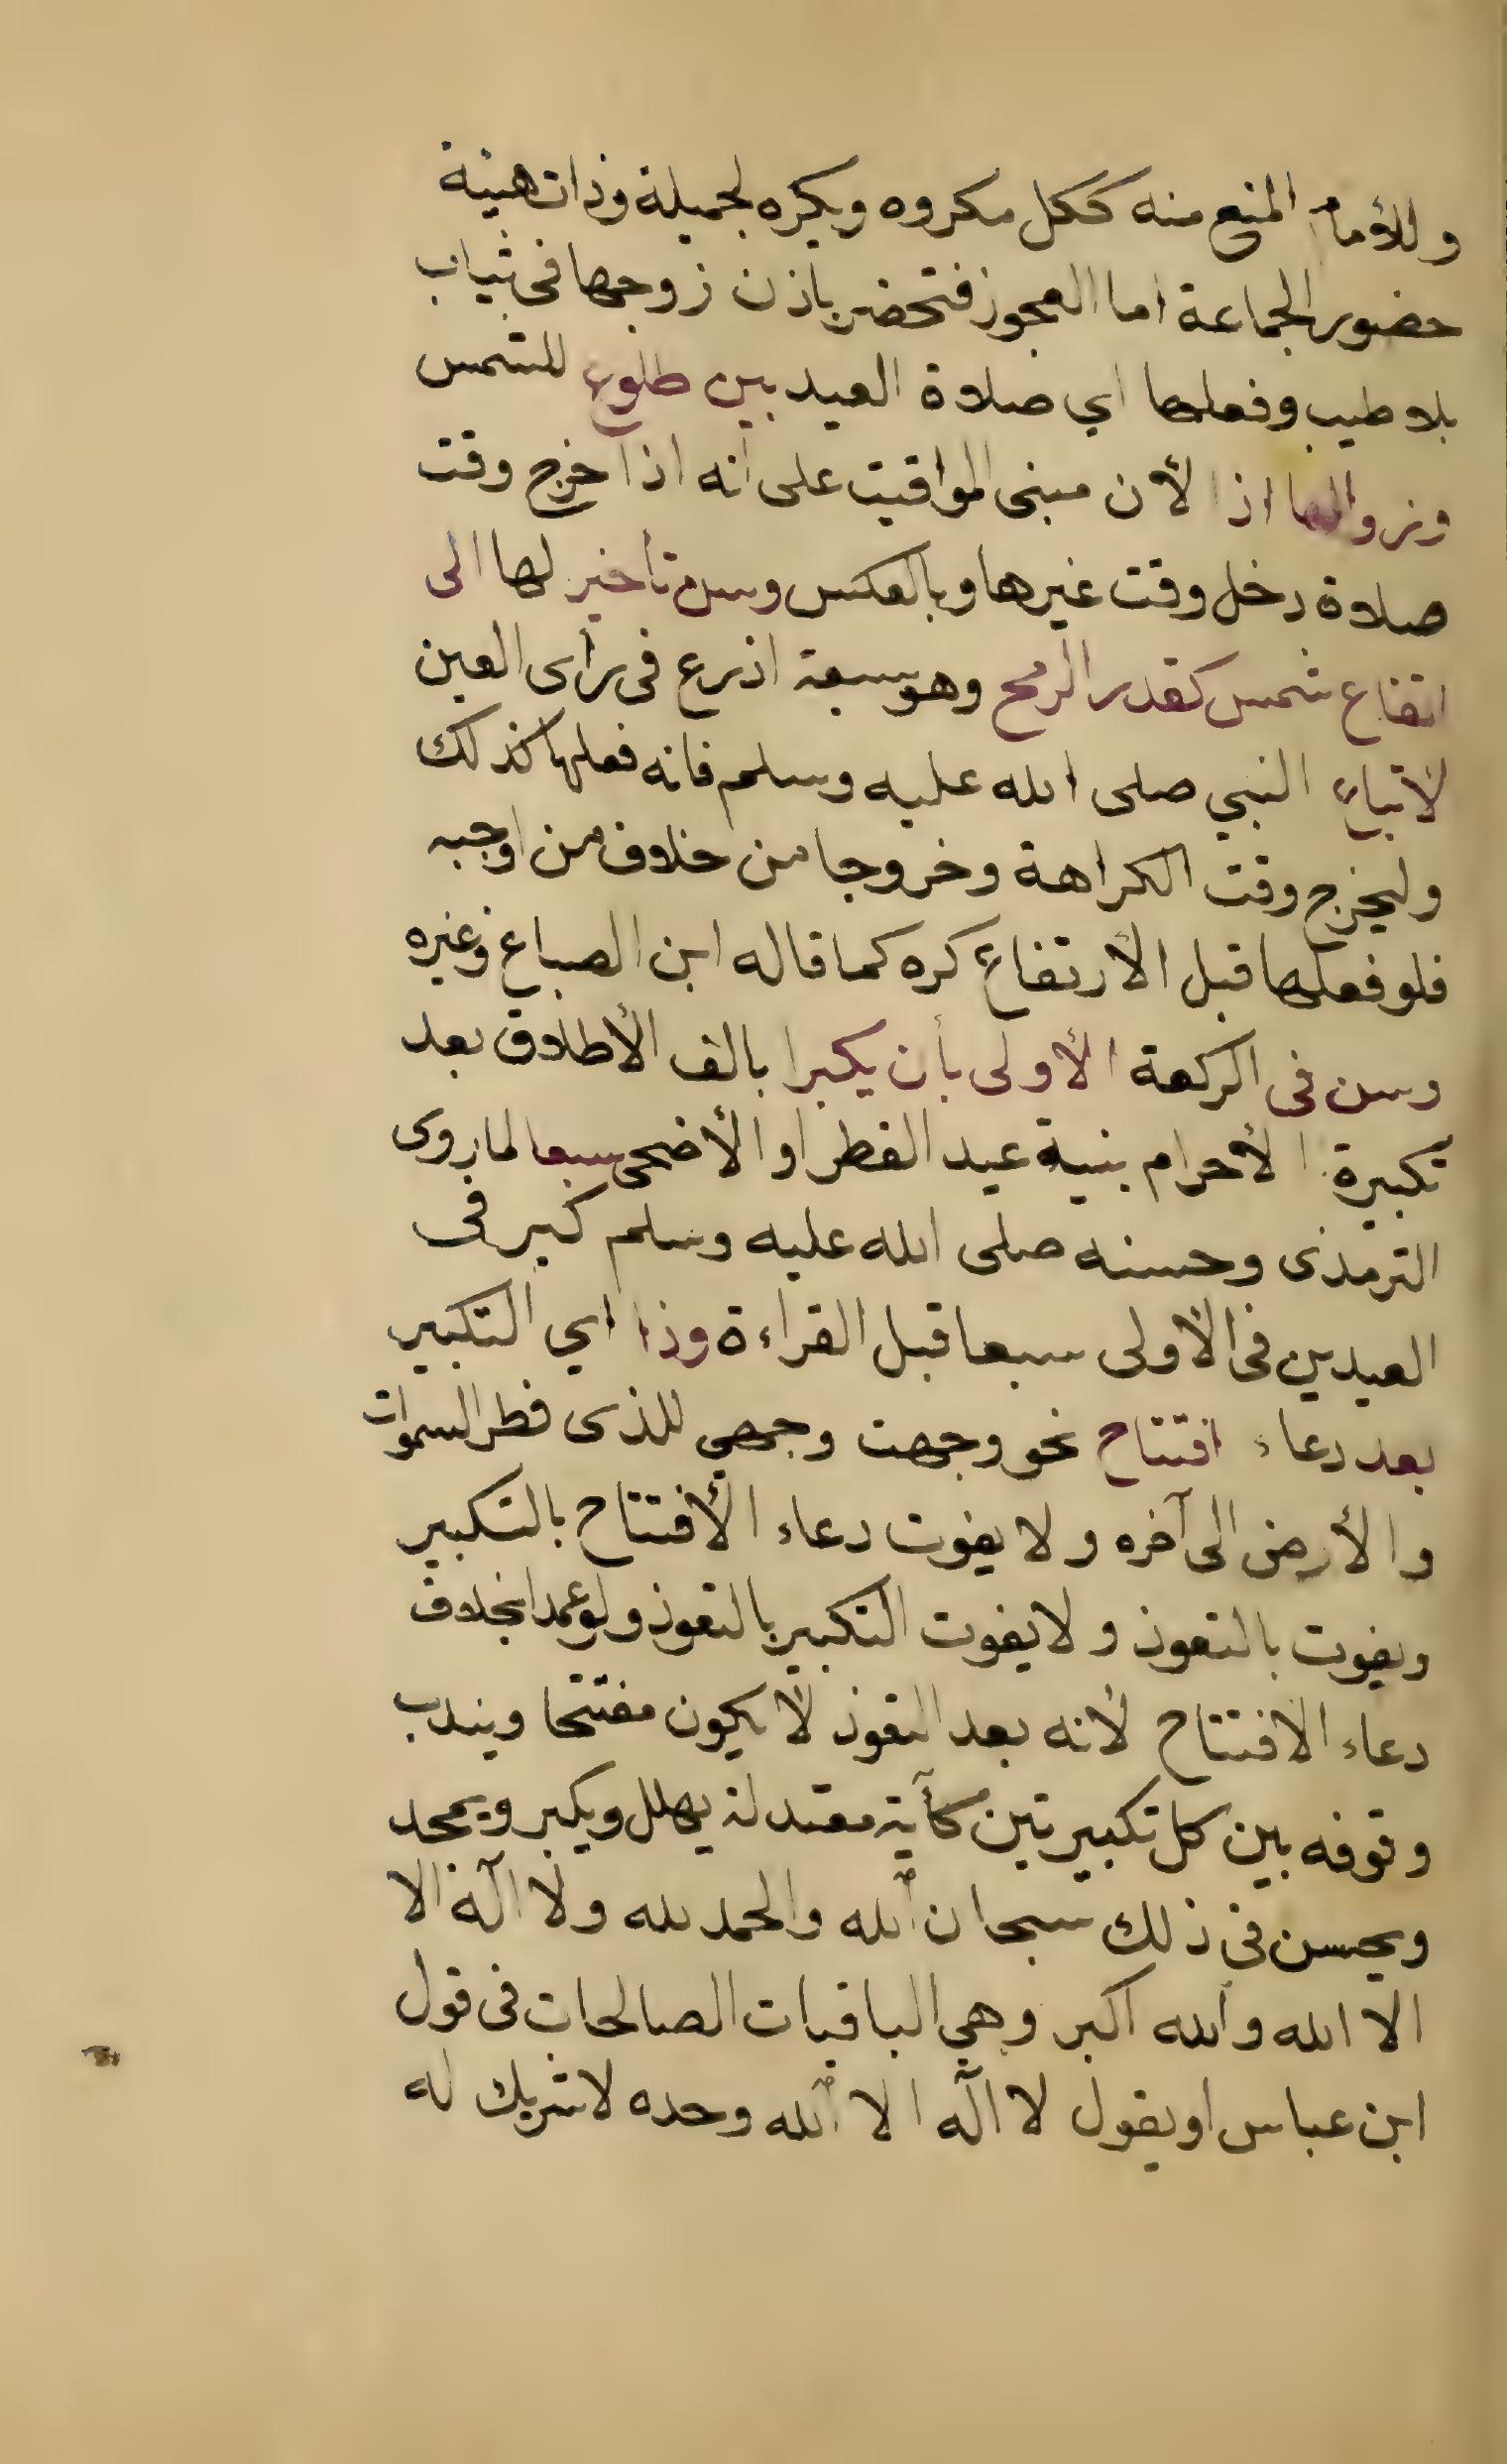 وللأمام المنع منه ككل مكروه ويكره لجميلة وذات هيئة
حضور الجماعة اما العجوز فتحضر باذن زوجها فى ثياب
بلا طيب وفعلها اي صلاة العيد بين طلوع للشمس
وزوالها اذا لأن مبنى المواقيت على انه اذا خرج وقت
صلاة دخل وقت غيرها وبالعكس وسن تأخير لها الى
ارتفاع شمس كقدر الرمح وهو سبعة اذرع فى رأى العين
لاتباع النبي صلى الله عليه وسلم فانه فعلها كذلك
وليخرج وقت الكراهة وخروجا من خلاف من اوجبه
فلو فعلها قبل الأرتفاع كره كما قاله ابن الصباغ وغيره
وسن فى الركعة الأولى بأن يكبرا بالف الأطلاق بعد
تكبيرة الأحرام بنية عيد الفطر او الأضحى سبعا لما روى
الترمذى وحسنه صلى الله عليه وسلم كبر فى
العيدين فى الأولى سبعا قبل القراءة وذا اي التكبير
بعد دعاء افتتاح نحو وجهت وجهي للذى فطر السموات
والأرض الى آخره ولا يفوت دعاء الأفتتاح بالتكبير
ويفوت بالتعوذ ولا يفوت التكبير بالتعوذ ولو عمدا بخلاف
دعاء الافتتاح لأنه بعد التعوذ لا يكون مفتتحا ويندب
وقوفه بين كل تكبيرتين كآية معتدلة يهلل ويكبر ويمجد
ويحسن فى ذلك سبحان الله والحمد لله ولا اله الا
الا الله والله اكبر وهي الباقيات الصالحات فى قول
ابن عباس او يقول لا اله الا الله وحده لا شريك له